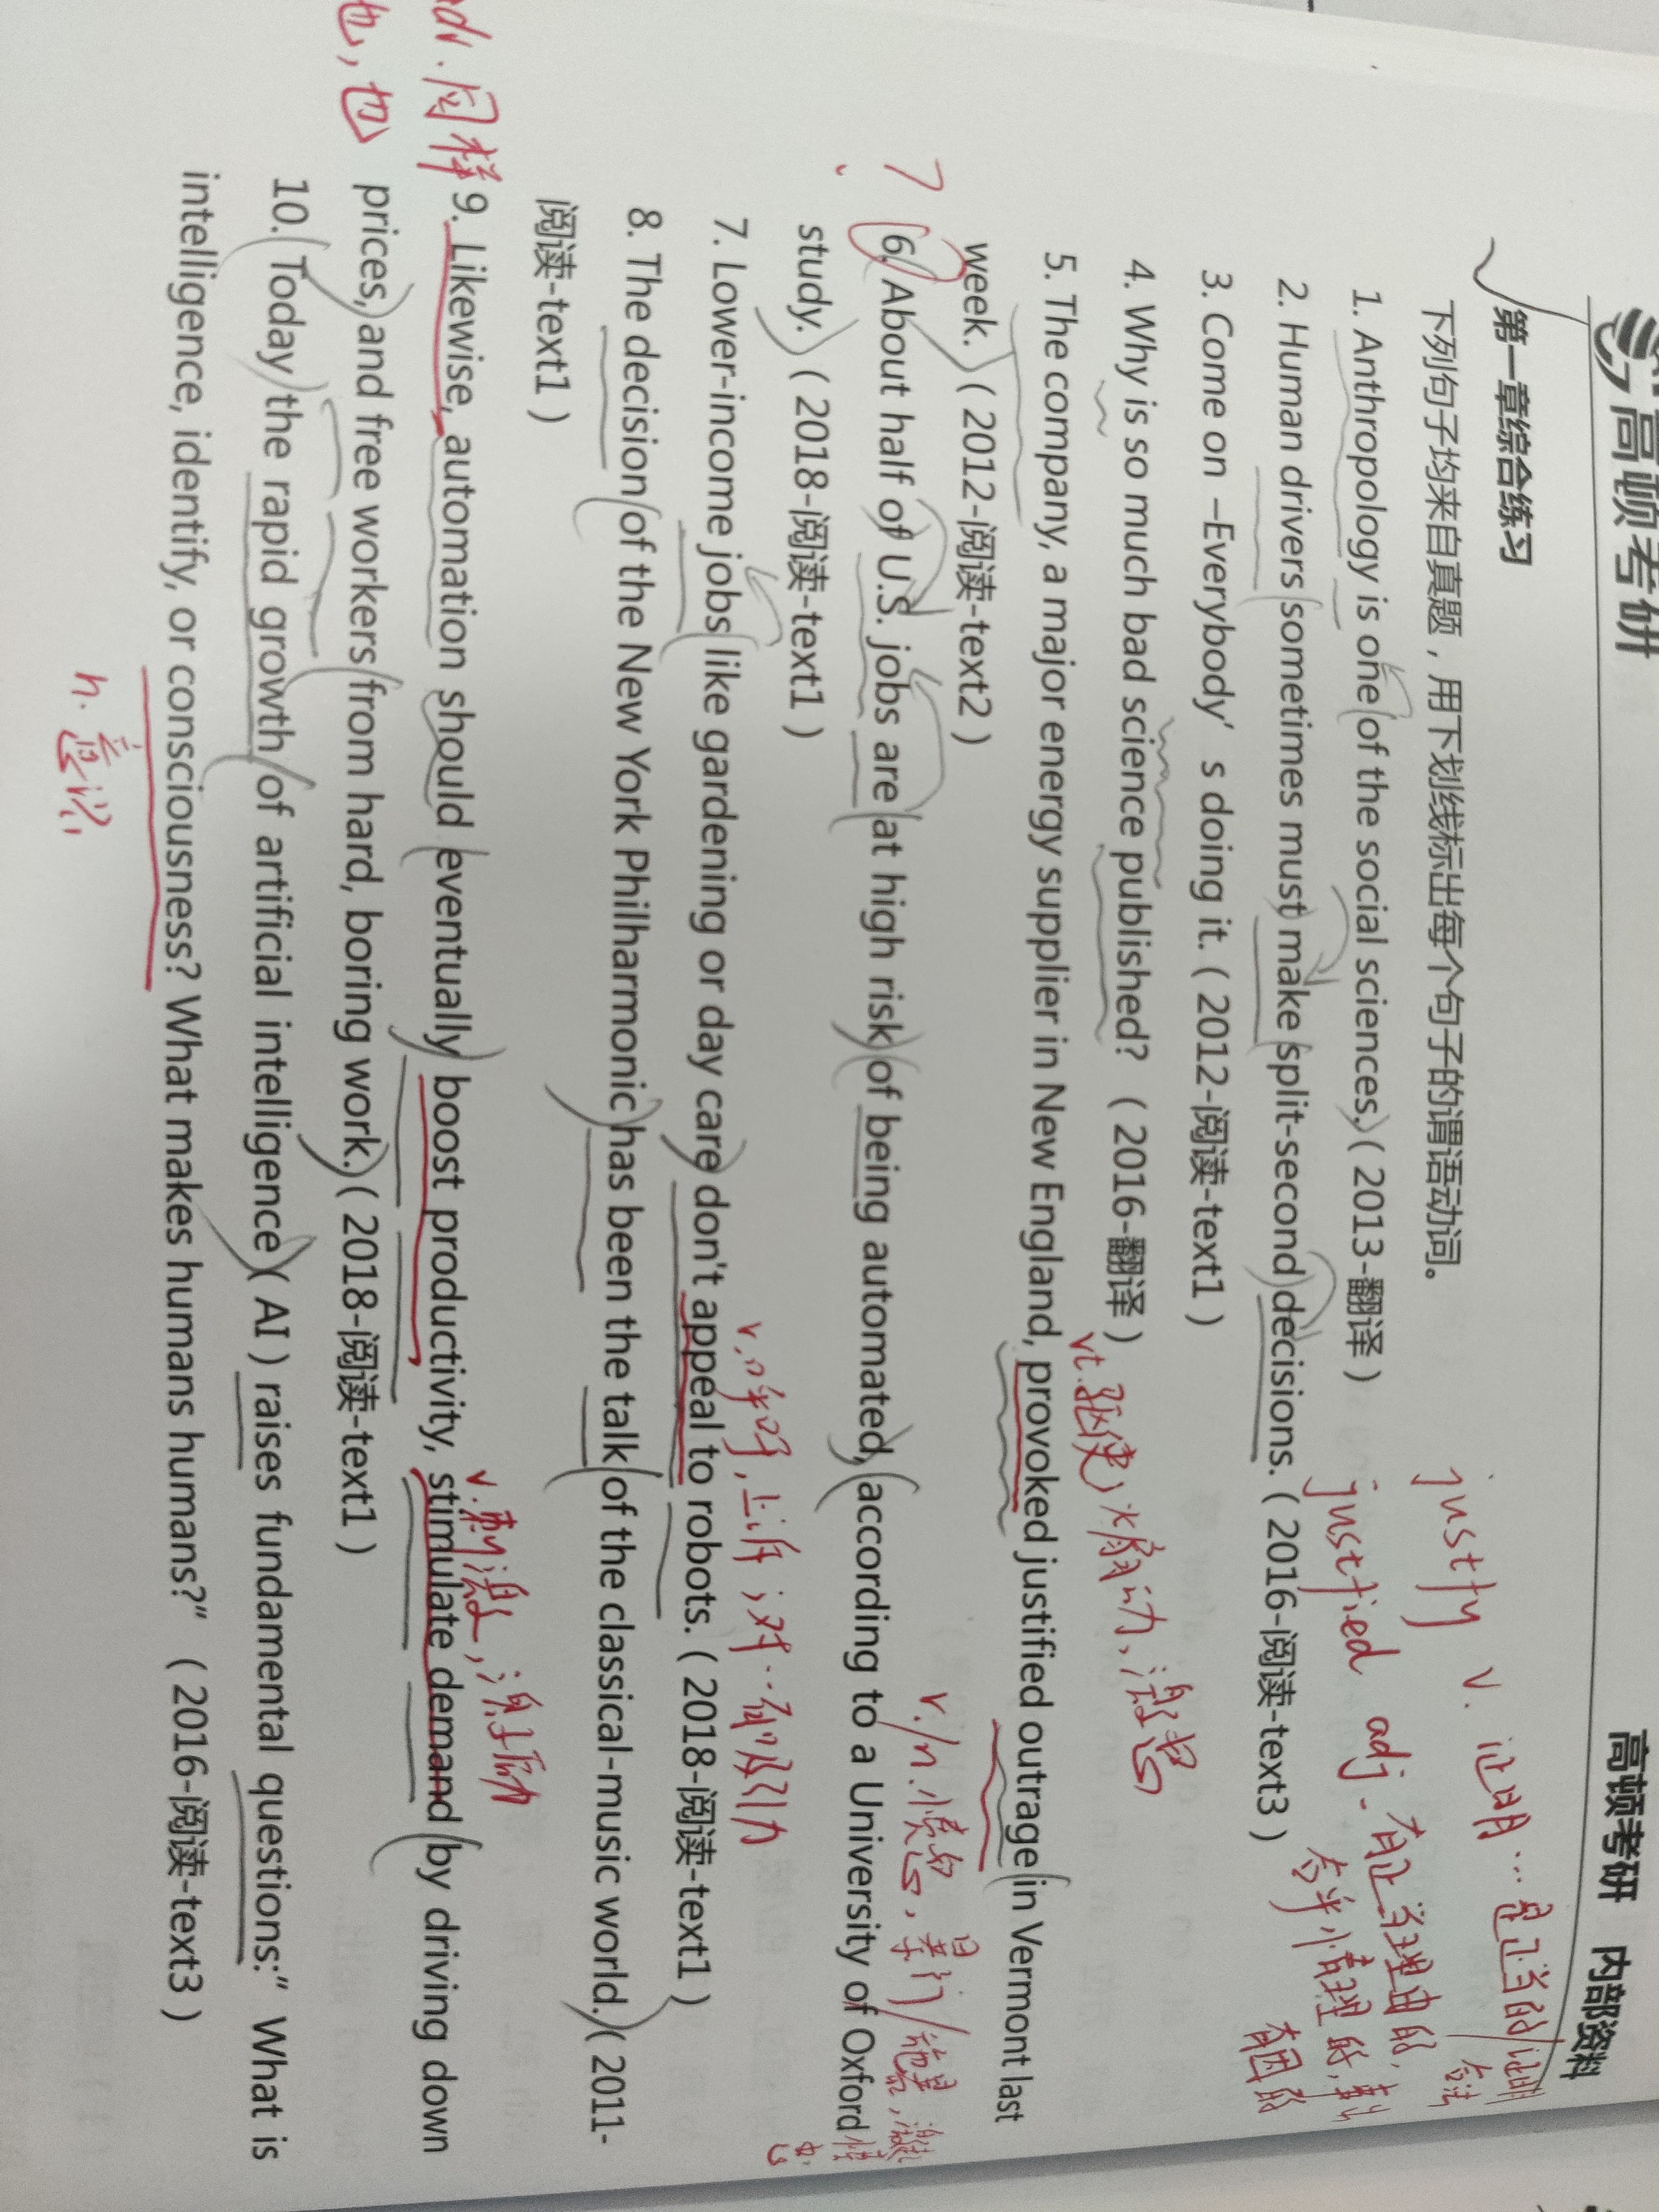 高顿考研
高顿考研 内部资料
第一章综合练习
下列句子均来自真题，用下划线标出每个句子的谓语动词。
justfy v. 证明…是正当的/证明
合法
justfied adj. 有正当理由的,
合乎情理的,
有因的
1. Anthropology is one of the social sciences.（2013-翻译）
2. Human drivers sometimes must make split-second decisions.（2016-阅读-text3）
3. Come on –Everybody’s doing it.（2012-阅读-text1）
4. Why is so much bad science published?（2016-翻译）
vt.驱使, 激怒
5. The company, a major energy supplier in New England, provoked justified outrage in Vermont last
week.（2012-阅读-text2）
v./n.愤怒,
7
6. About half of U.S. jobs are at high risk of being automated, according to a University of Oxford
study.（2018-阅读-text1）
v.呼吁,上诉;对..有吸引力
7. Lower-income jobs like gardening or day care don't appeal to robots.（2018-阅读-text1）
8. The decision of the New York Philharmonic has been the talk of the classical-music world.（2011-
阅读-text1）
v.刺激,
adv.同样
也,也
9. Likewise, automation should eventually boost productivity, stimulate demand by driving down
prices, and free workers from hard, boring work.（2018-阅读-text1）
10. Today the rapid growth of artificial intelligence（AI）raises fundamental questions:” What is
intelligence, identify, or consciousness? What makes humans humans?”（2016-阅读-text3）
n.意识